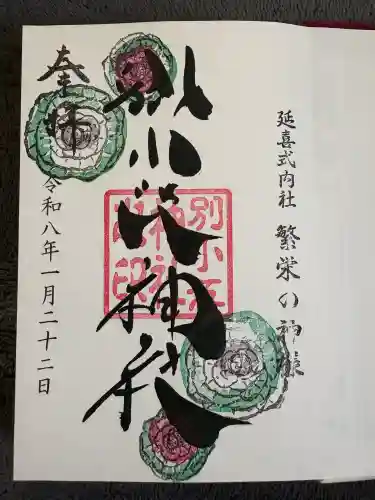 延喜式内社 繁栄の神様
別小江神社
別小江
神社
之印
奉拝
令和八年一月二十二日